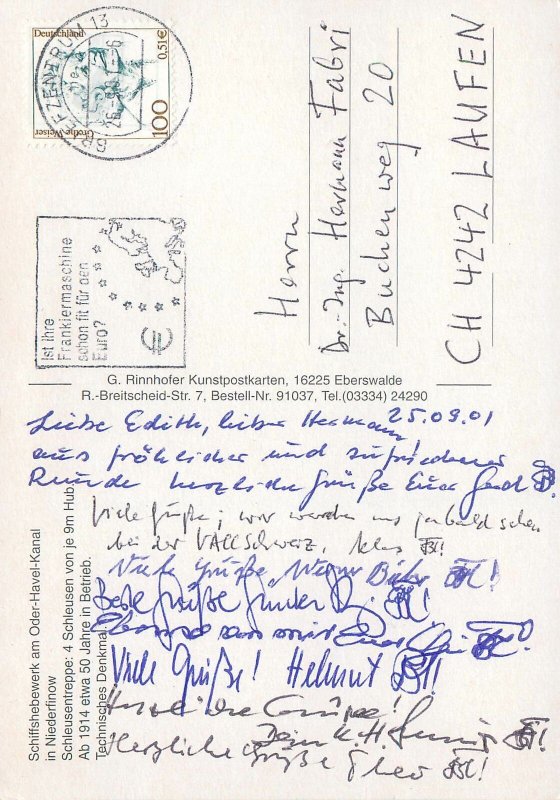 Deutschland
0,51€
100
Große Weiser
BRIEFZENTRUM 13
Ist Ihre
Frankiermaschine
schon fit für den
Euro?
€
Herrn
Dr.-Ing. Hermann Fabri
Buchenweg 20
CH 4242 LAUFEN
G. Rinnhofer Kunstpostkarten, 16225 Eberswalde
R.-Breitscheid-Str. 7, Bestell-Nr. 91037, Tel.(03334) 24290
25.09.01
Liebe Edith, lieber Hermann,
aus fröhlicher und zufriedener
Runde herzliche Grüße Euer
Viele Grüße, wir werden uns ja bald sehen
bei der VALLSchweiz, Klaus
Viele Grüße, Werner
Beste Grüße
Viele Grüße! Helmut
Herzliche Grüße!
K. H.
Herzliche Grüße Theo
Schiffshebewerk am Oder-Havel-Kanal
in Niederfinow
Schleusentreppe: 4 Schleusen von je 9m Hub
Ab 1914 etwa 50 Jahre in Betrieb.
Technisches Denkmal.